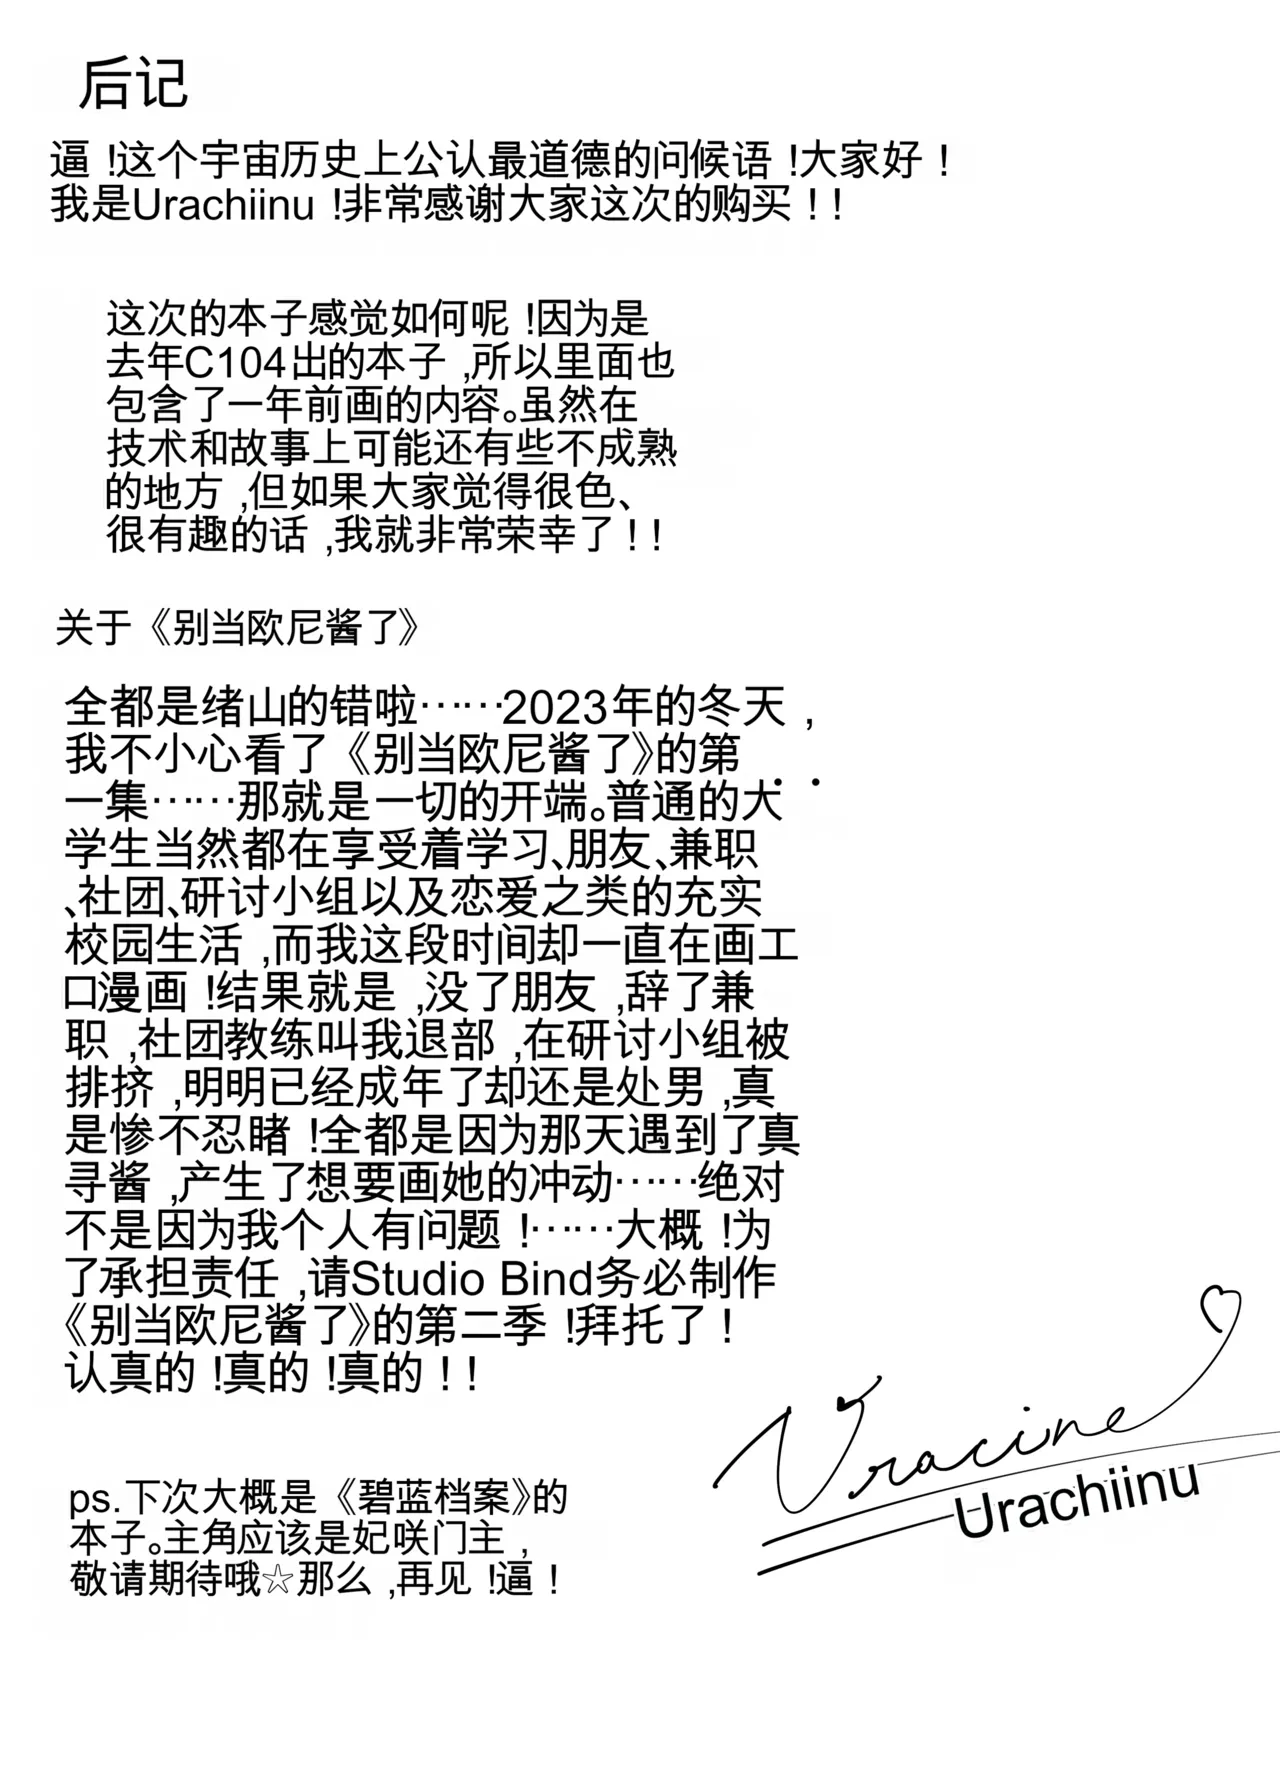 后记
逼!这个宇宙历史上公认最道德的问候语!大家好!
我是Urachiinu!非常感谢大家这次的购买!!
这次的本子感觉如何呢!因为是
去年C104出的本子,所以里面也
包含了一年前画的内容。虽然在
技术和故事上可能还有些不成熟
的地方,但如果大家觉得很色、
很有趣的话,我就非常荣幸了!!
关于《别当欧尼酱了》
全都是绪山的错啦……2023年的冬天,
我不小心看了《别当欧尼酱了》的第
一集……那就是一切的开端。普通的大
学生当然都在享受着学习、朋友、兼职
、社团、研讨小组以及恋爱之类的充实
校园生活,而我这段时间却一直在画工
口漫画!结果就是,没了朋友,辞了兼
职,社团教练叫我退部,在研讨小组被
排挤,明明已经成年了却还是处男,真
是惨不忍睹!全都是因为那天遇到了真
寻酱,产生了想要画她的冲动……绝对
不是因为我个人有问题!……大概!为
了承担责任,请Studio Bind务必制作
《别当欧尼酱了》的第二季!拜托了!
认真的!真的!真的!!
Uracine
Urachiinu
ps.下次大概是《碧蓝档案》的
本子。主角应该是妃咲门主,
敬请期待哦☆那么,再见!逼!